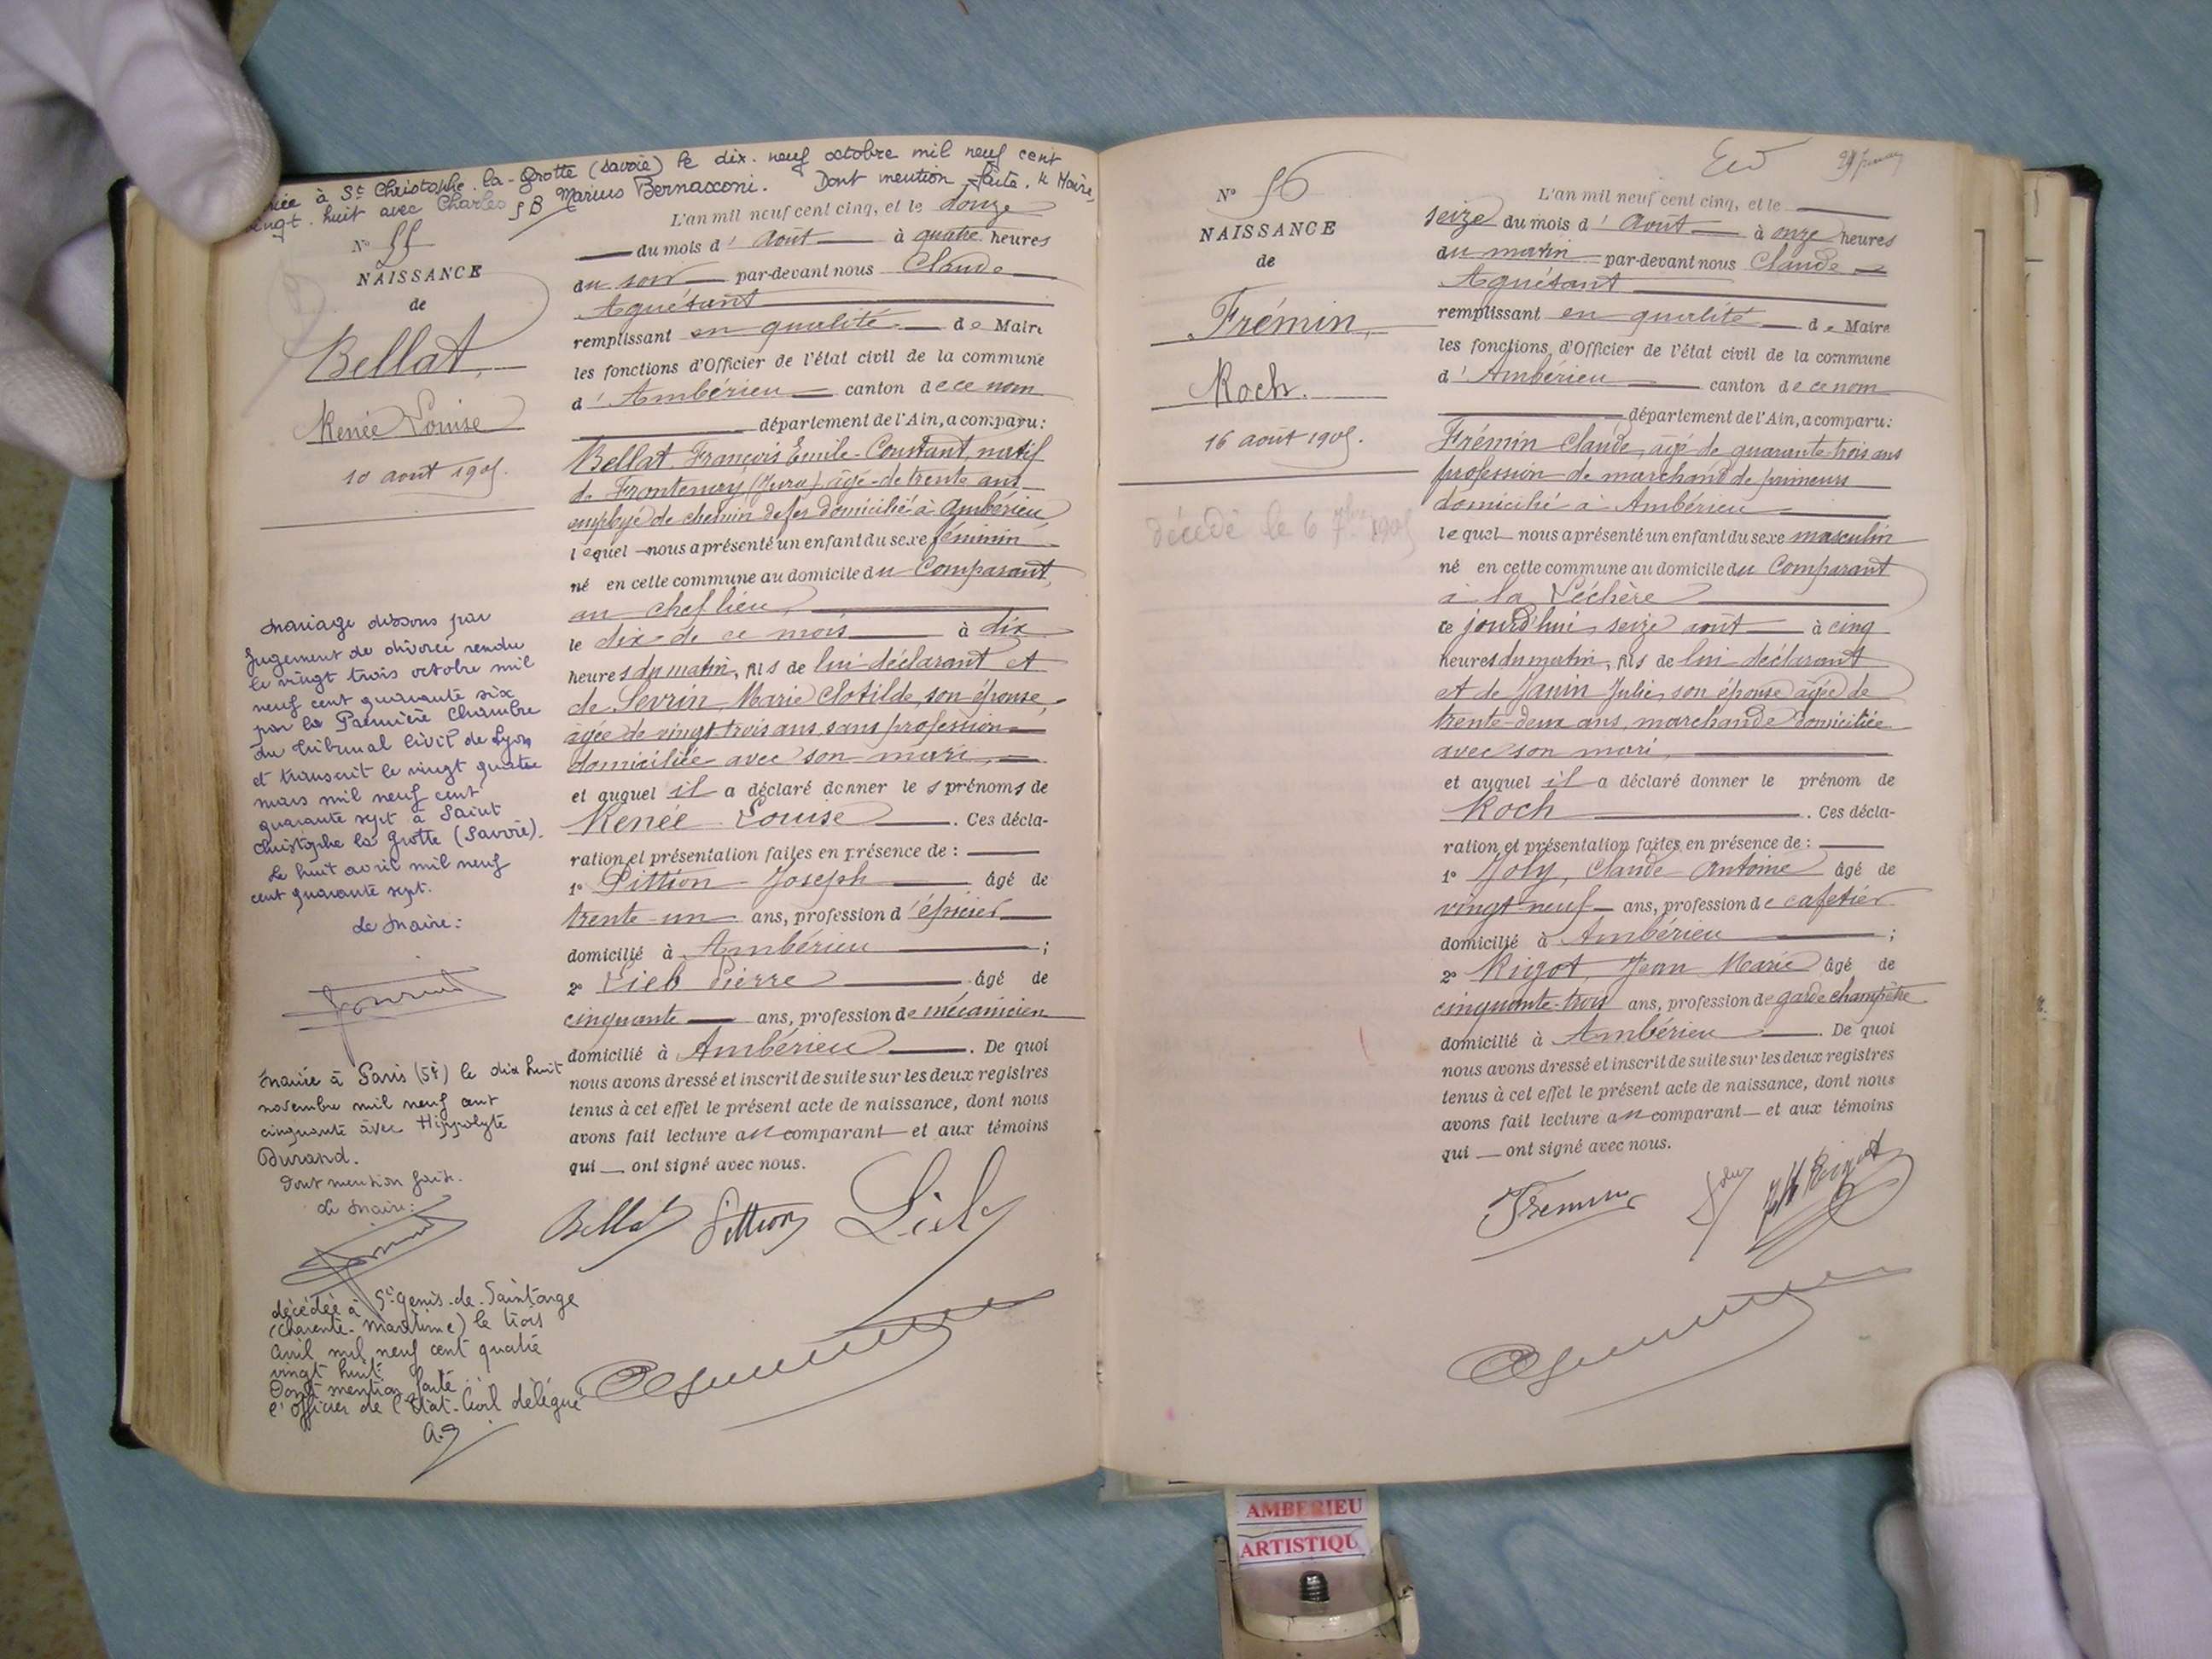 à St Christophe-la-Grotte (Savoie) le dix-neuf octobre mil neuf cent
vingt-huit avec Charles Marius Bernasconi. Dont mention faite. le Maire,
N° 55
NAISSANCE
de
Bellat,
Renée Louise
10 août 1905.
Mariage dissous par
jugement de divorce rendu
le vingt trois octobre mil
neuf cent quarante six
par la Première Chambre
du Tribunal Civil de Lyon
et transcrit le vingt quatre
mars mil neuf cent
quarante sept à Saint
Christophe la Grotte (Savoie).
Le huit avril mil neuf
cent quarante sept.
Le Maire:
Mariée à Paris (5e) le dix huit
novembre mil neuf cent
cinquante avec Hippolyte
Durand.
Dont mention faite.
Le Maire:
décédée à St-Genis-de-Saintonge
(Charente-Maritime) le trois
avril mil neuf cent quatre
vingt huit.
Dont mention faite
l'Officier de l'Etat-Civil délégué
L'an mil neuf cent cinq, et le douze
du mois d'août à quatre heures
du soir par-devant nous Claude
Aguétant
remplissant en qualité de Maire
les fonctions d'Officier de l'état civil de la commune
d'Ambérieu canton de ce nom
département de l'Ain, a comparu:
Bellat François Emile-Constant, natif
de Frontenay (Jura) âgé de trente ans
employé de chemin de fer domicilié à Ambérieu
lequel nous a présenté un enfant du sexe féminin
né en cette commune au domicile du Comparant,
au chef lieu,
le dix de ce mois à dix
heures du matin, fils de lui déclarant et
de Sevrin Marie Clotilde, son épouse,
âgée de vingt trois ans, sans profession
domiciliée avec son mari,
et auquel il a déclaré donner les prénoms de
Renée Louise. Ces décla-
ration et présentation faites en présence de:
1° Pittion Joseph âgé de
trente-un ans, profession d'épicier
domicilié à Ambérieu;
2° Lieb Pierre âgé de
cinquante ans, profession de mécanicien
domicilié à Ambérieu. De quoi
nous avons dressé et inscrit de suite sur les deux registres
tenus à cet effet le présent acte de naissance, dont nous
avons fait lecture au comparant et aux témoins
qui ont signé avec nous.
Bellat Pittion Lieb
N° 56
NAISSANCE
de
Frémin,
Roch.
16 août 1905.
décédé le 6 7bre 1905
L'an mil neuf cent cinq, et le
seize du mois d'août à onze heures
du matin par-devant nous Claude
Aguétant
remplissant en qualité de Maire
les fonctions d'Officier de l'état civil de la commune
d'Ambérieu canton de ce nom
département de l'Ain, a comparu:
Frémin Claude, âgé de quarante-trois ans
profession de marchand de primeurs
domicilié à Ambérieu
lequel nous a présenté un enfant du sexe masculin
né en cette commune au domicile du Comparant
à la Léchère
ce jourd'hui seize août à cinq
heures du matin, fils de lui déclarant
et de Janin Julie, son épouse âgée de
trente-deux ans, marchande domiciliée
avec son mari,
et auquel il a déclaré donner le prénom de
Roch. Ces décla-
ration et présentation faites en présence de:
1° Joly, Claude Antoine âgé de
vingt-neuf ans, profession de cafetier
domicilié à Ambérieu;
2° Rigot, Jean Marie âgé de
cinquante-trois ans, profession de garde champêtre
domicilié à Ambérieu. De quoi
nous avons dressé et inscrit de suite sur les deux registres
tenus à cet effet le présent acte de naissance, dont nous
avons fait lecture au comparant et aux témoins
qui ont signé avec nous.
Fremin Joly JM Rigot
AMBERIEU
ARTISTIQU